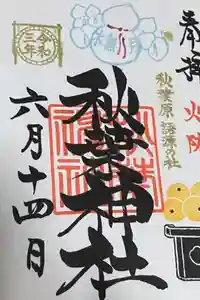 奉拝
火防
秋葉原 諸源の社
秋葉神社
令和三年
六月十四日